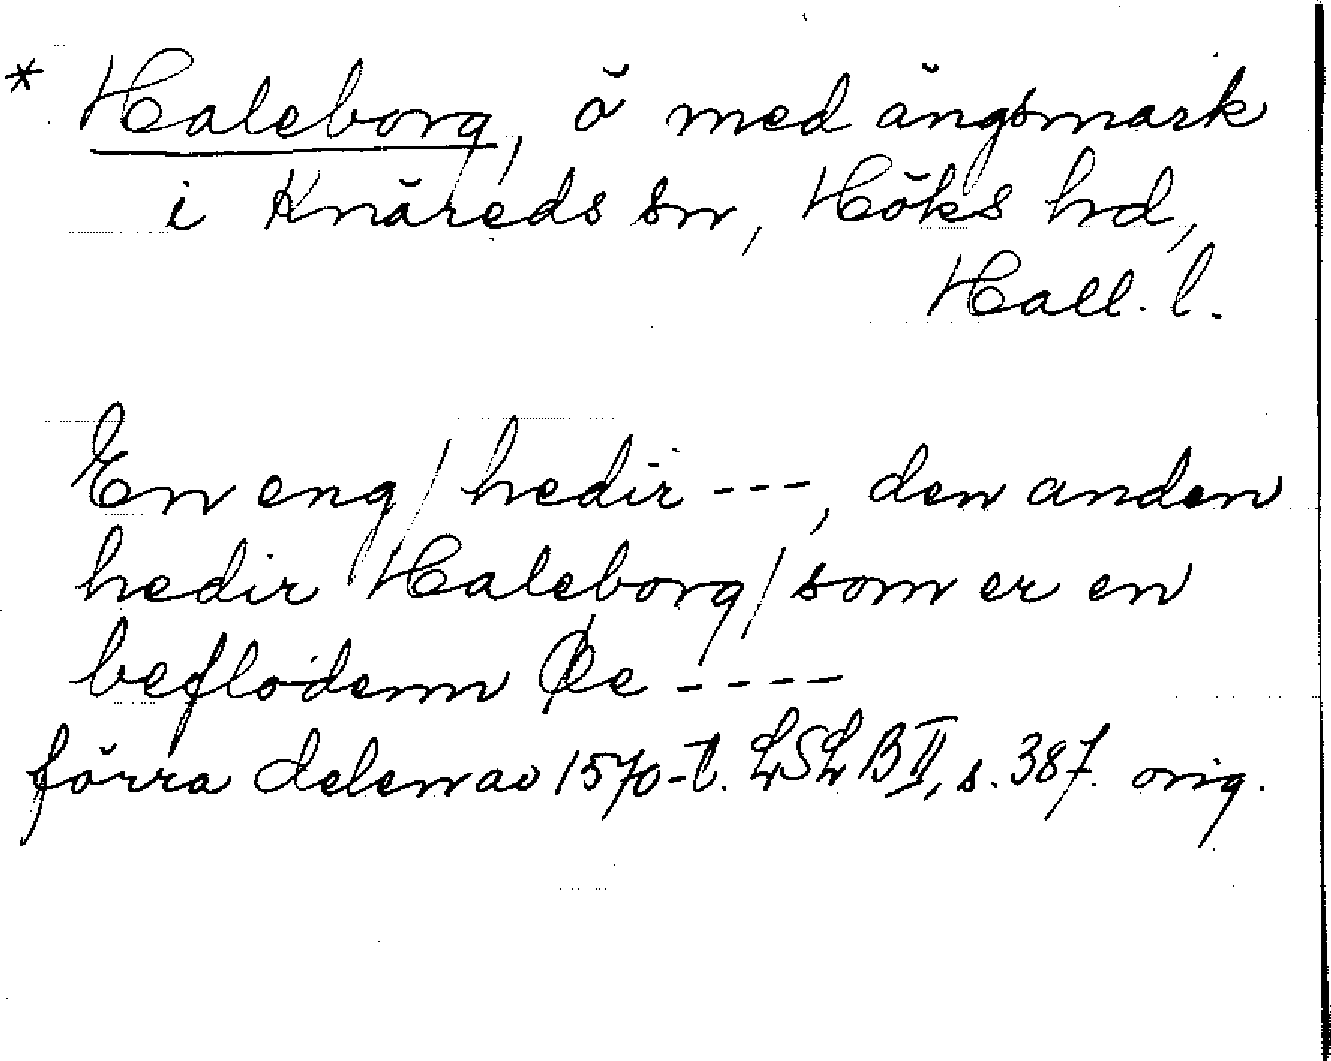 * Haleborg, ö med ängsmark
i Knäreds sn, Höks hd,
Hall. l.
En eng / hedir ---, den anden
hedir Haleborg / som er en
beflodenn Øe ----
förra delen av 1570-t. LSLB II, s. 387. orig.